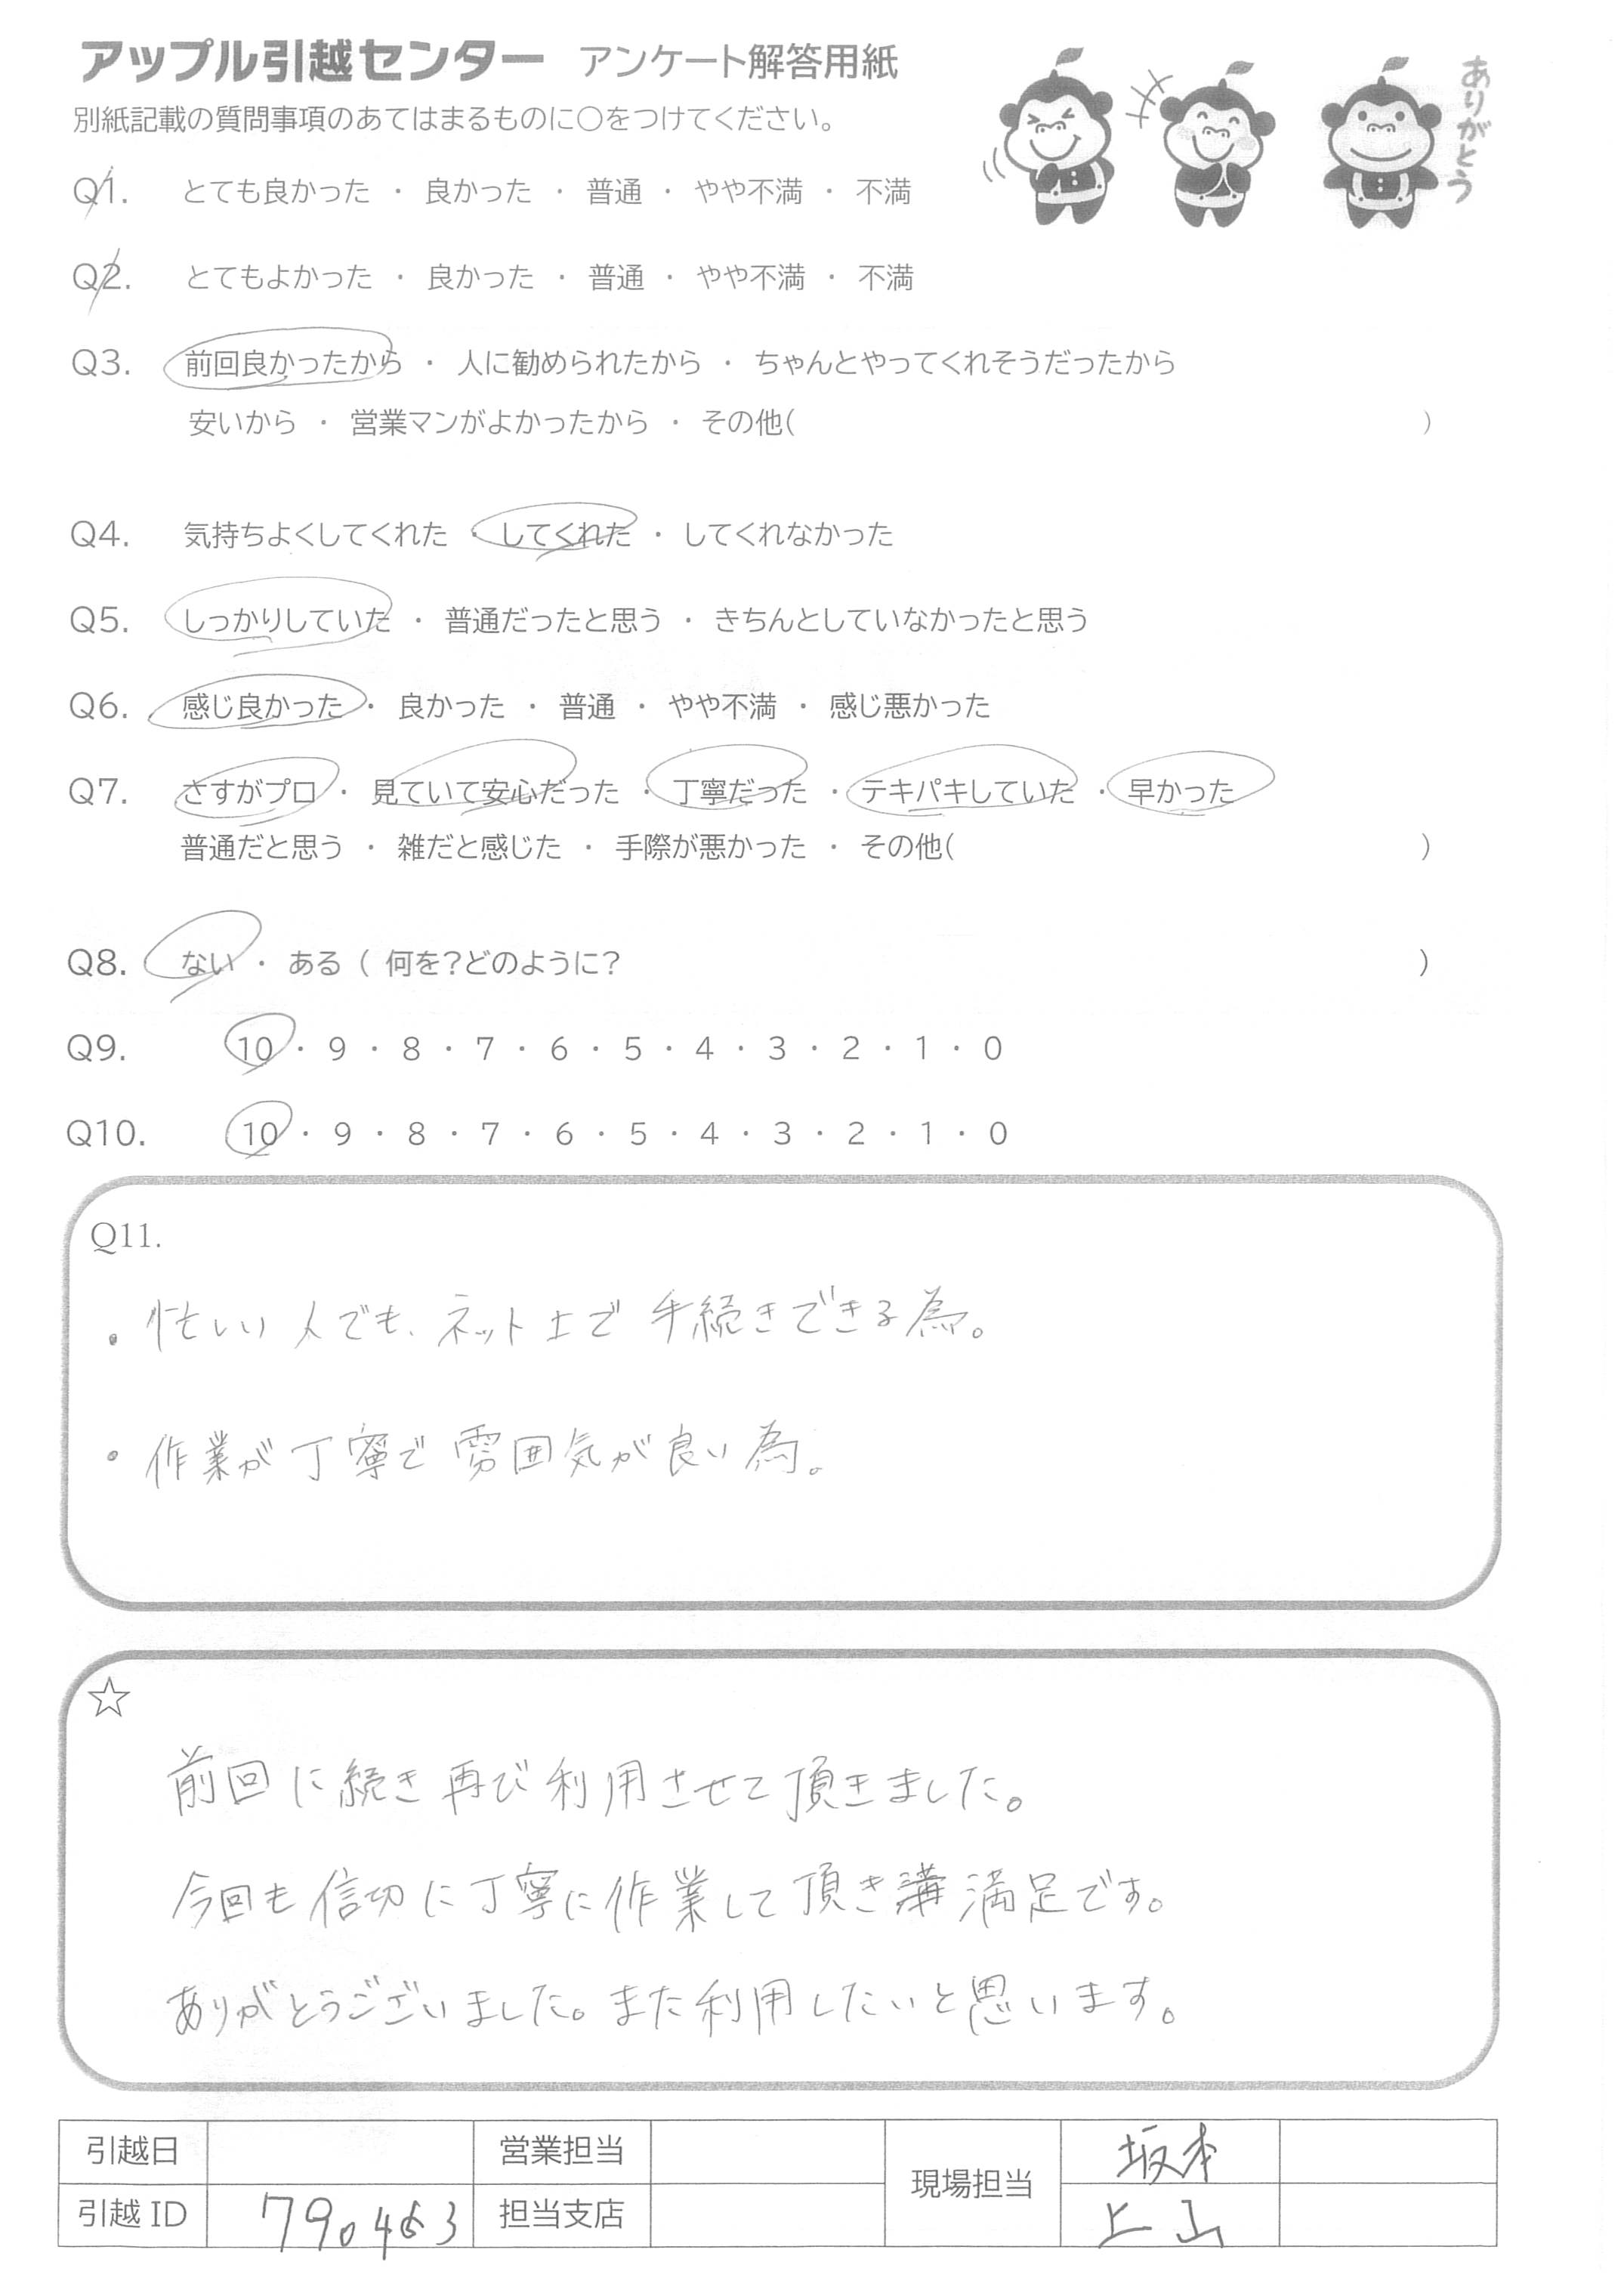 アップル引越センター アンケート解答用紙
ありがとう
別紙記載の質問事項のあてはまるものに○をつけてください。
Q1. とても良かった ・ 良かった ・ 普通 ・ やや不満 ・ 不満
Q2. とてもよかった ・ 良かった ・ 普通 ・ やや不満 ・ 不満
Q3. 前回良かったから ・ 人に勧められたから ・ ちゃんとやってくれそうだったから
安いから ・ 営業マンがよかったから ・ その他( )
Q4. 気持ちよくしてくれた ・ してくれた ・ してくれなかった
Q5. しっかりしていた ・ 普通だったと思う ・ きちんとしていなかったと思う
Q6. 感じ良かった ・ 良かった ・ 普通 ・ やや不満 ・ 感じ悪かった
Q7. さすがプロ ・ 見ていて安心だった ・ 丁寧だった ・ テキパキしていた ・ 早かった
普通だと思う ・ 雑だと感じた ・ 手際が悪かった ・ その他( )
Q8. ない ・ ある ( 何を?どのように? )
Q9. 10 ・ 9 ・ 8 ・ 7 ・ 6 ・ 5 ・ 4 ・ 3 ・ 2 ・ 1 ・ 0
Q10. 10 ・ 9 ・ 8 ・ 7 ・ 6 ・ 5 ・ 4 ・ 3 ・ 2 ・ 1 ・ 0
Q11.
・忙しい人でも、ネット上で手続きできる為。
・作業が丁寧で雰囲気が良い為。
☆
前回に続き再び利用させて頂きました。
今回も信切に丁寧に作業して頂き満足です。
ありがとうございました。また利用したいと思います。
引越日 営業担当 現場担当 坂本
引越 ID 790463 担当支店 上山